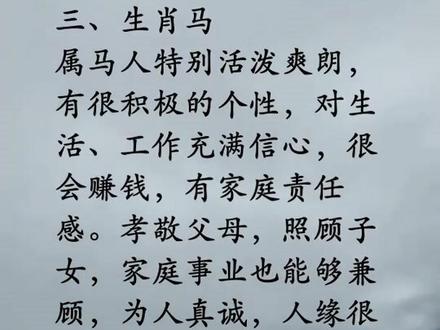 三、生肖马
属马人特别活泼爽朗，
有很积极的个性，对生
活、工作充满信心，很
会赚钱，有家庭责任
感。孝敬父母，照顾子
女，家庭事业也能够兼
顾，为人真诚，人缘很